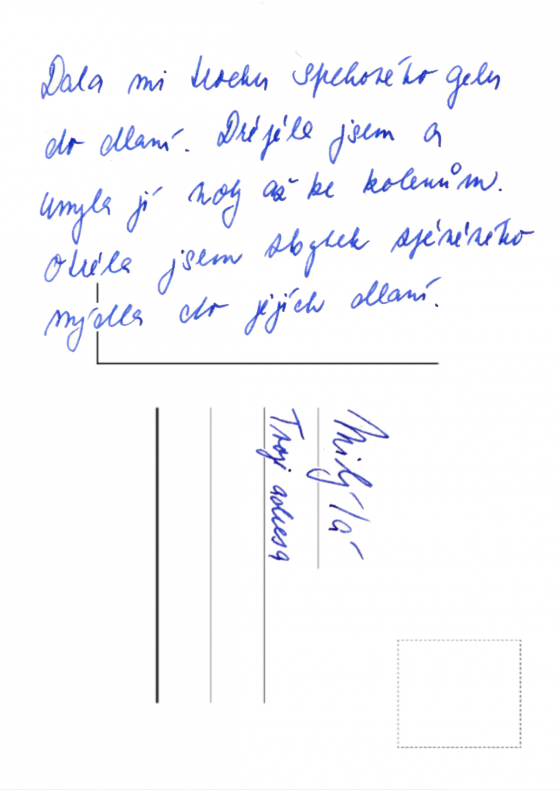 Dala mi trochu sprchového gelu
do dlaní. Dřepěla jsem a
umyla jí nohy až ke kolenům.
Otřela jsem zbytek zpěněného
mýdla do jejích dlaní.
Milý/á
Tvoji adresa